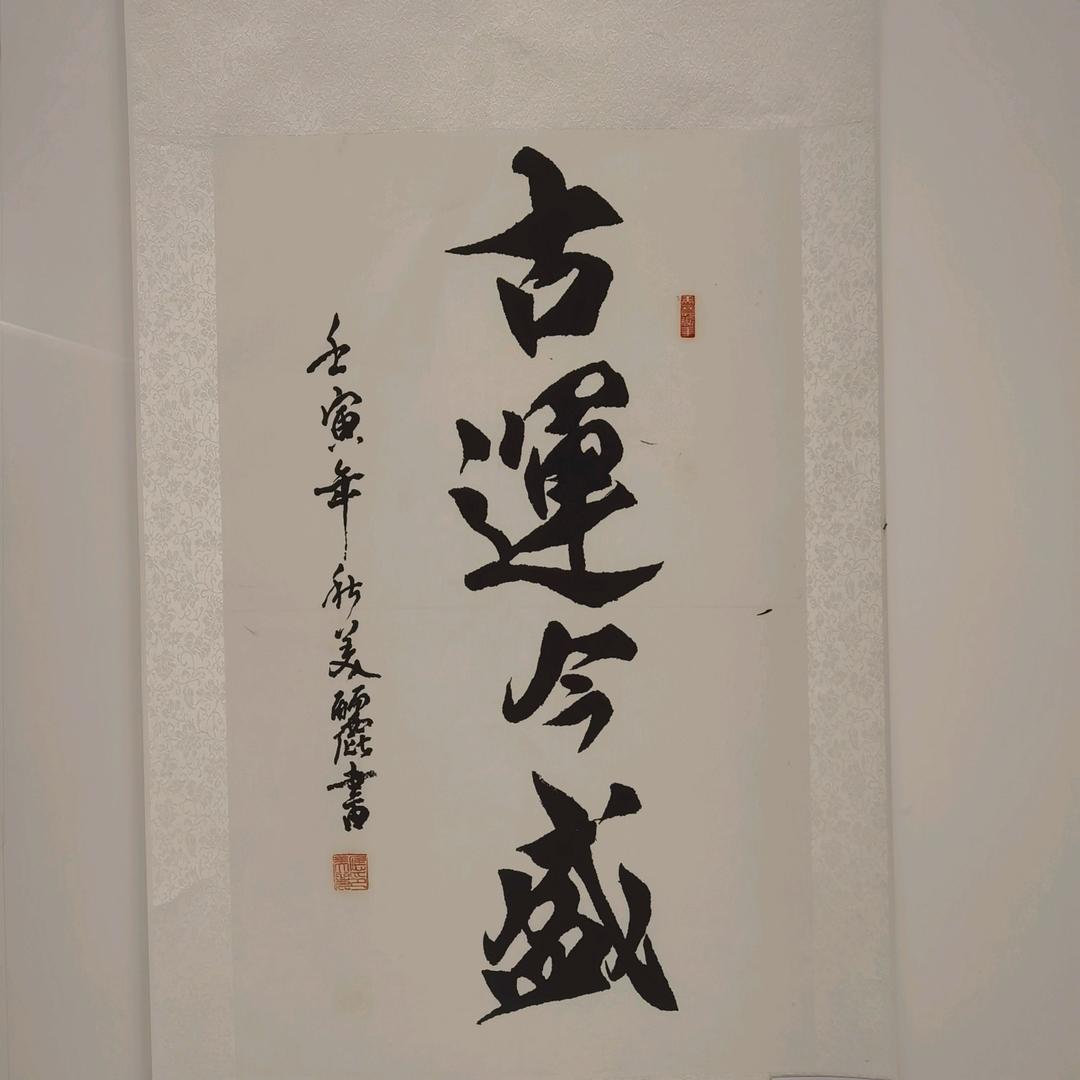 古運今盛
壬寅年秋美麗書